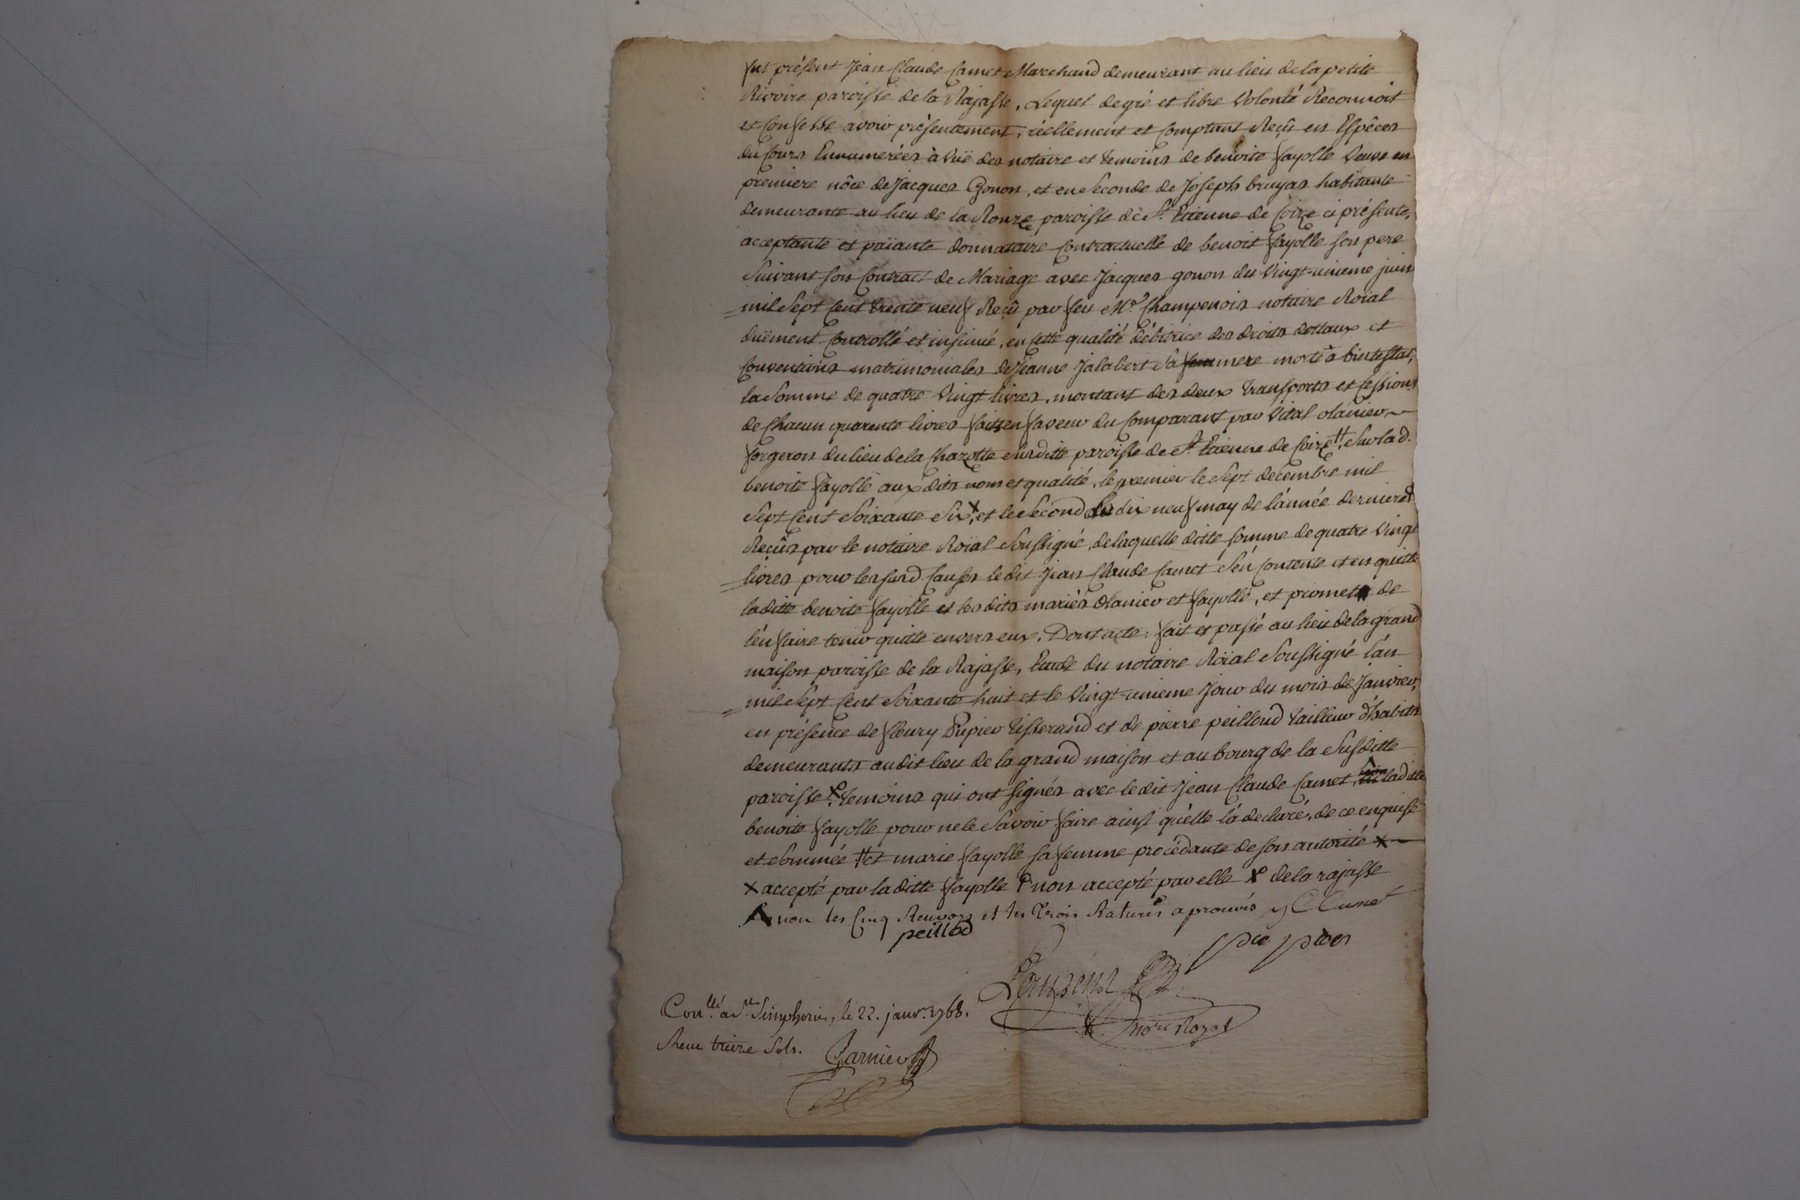 fut présent Jean Claude Camet Marchand demeurant au lieu de la petite
Rivoire paroisse de la Rajasse, Lequel de gré et libre Volonté Reconnoit
et Confesse avoir présentement, réellement et Comptant Reçû en Espêces
du Cours Ennumerées à Vuë des notaire et temoins de benoite fayolle Veuve en
premiere nôce de Jacques Gonon, et en Seconde de Joseph bruyas habitante
demeurante au lieu de la Ronze paroisse de St. Etienne de Coize ci présente,
acceptante et païante donnataire Contractuelle de benoit fayolle son pere
Suivant son Contract de Mariage avec Jacques gonon du Vingt-unieme juin
mil Sept Cent trente neuf Reçû par feu Me. Champenois notaire Roïal
duëment Controllé et insinué, en Cette qualité débitrice des droits dottaux et
Conventions matrimoniales de Jeanne Jalabert Sa mere morte ab intestat,
la Somme de quatre Vingt livres, montant des deux transports et Cessions
de Chacun quarente livres faits en faveur du Comparant par Vital olanier
forgeron du lieu de la Chazotte Susditte paroisse de St. Etienne de Coize ++, Sur lad.
benoite fayolle aux dits nom et qualité, le premier le Sept decembre mil
Sept Cent Soixante Six x, et le Second Le dix neuf may de l'année derniere
Reçûs par le notaire Roïal Soussigné, de laquelle ditte somme de quatre Vingt
livres pour les susd. Causes le dit Jean Claude Camet S'en Contente et en quitte
la ditte benoite fayolle et les dits mariés Olanier et fayolle, et promet de
l'en faire tenir quitte envers eux. Dont acte: fait et passé au lieu de la grand
maison paroisse de la Rajasse, Etude du notaire Roïal Soussigné l'an
mil Sept Cent Soixante huit et le Vingt-unieme Jour du mois de Janvier,
en présence de fleury Pupier tisserand et de pierre peilloud tailleur d'habits
demeurants au dit lieu de la grand maison et au bourg de la Susditte
paroisse x temoins qui ont signés avec le dit Jean Claude Camet, la ditte
benoite fayolle pour ne le Savoir faire ainsi qu'elle l'a declaré, de ce enquise
et Sommée ++ et marie fayolle sa femme procédante de son autorité x
x accepté par la ditte fayolle non accepté par elle x de la rajasse
non les Cinq Renvoys et les trois Ratures aprouvés J C Camet
peillod
Con.llé a St. Simphorien, le 22. janv. 1768.
Reçu treize Sols. Garnier
nore Royal